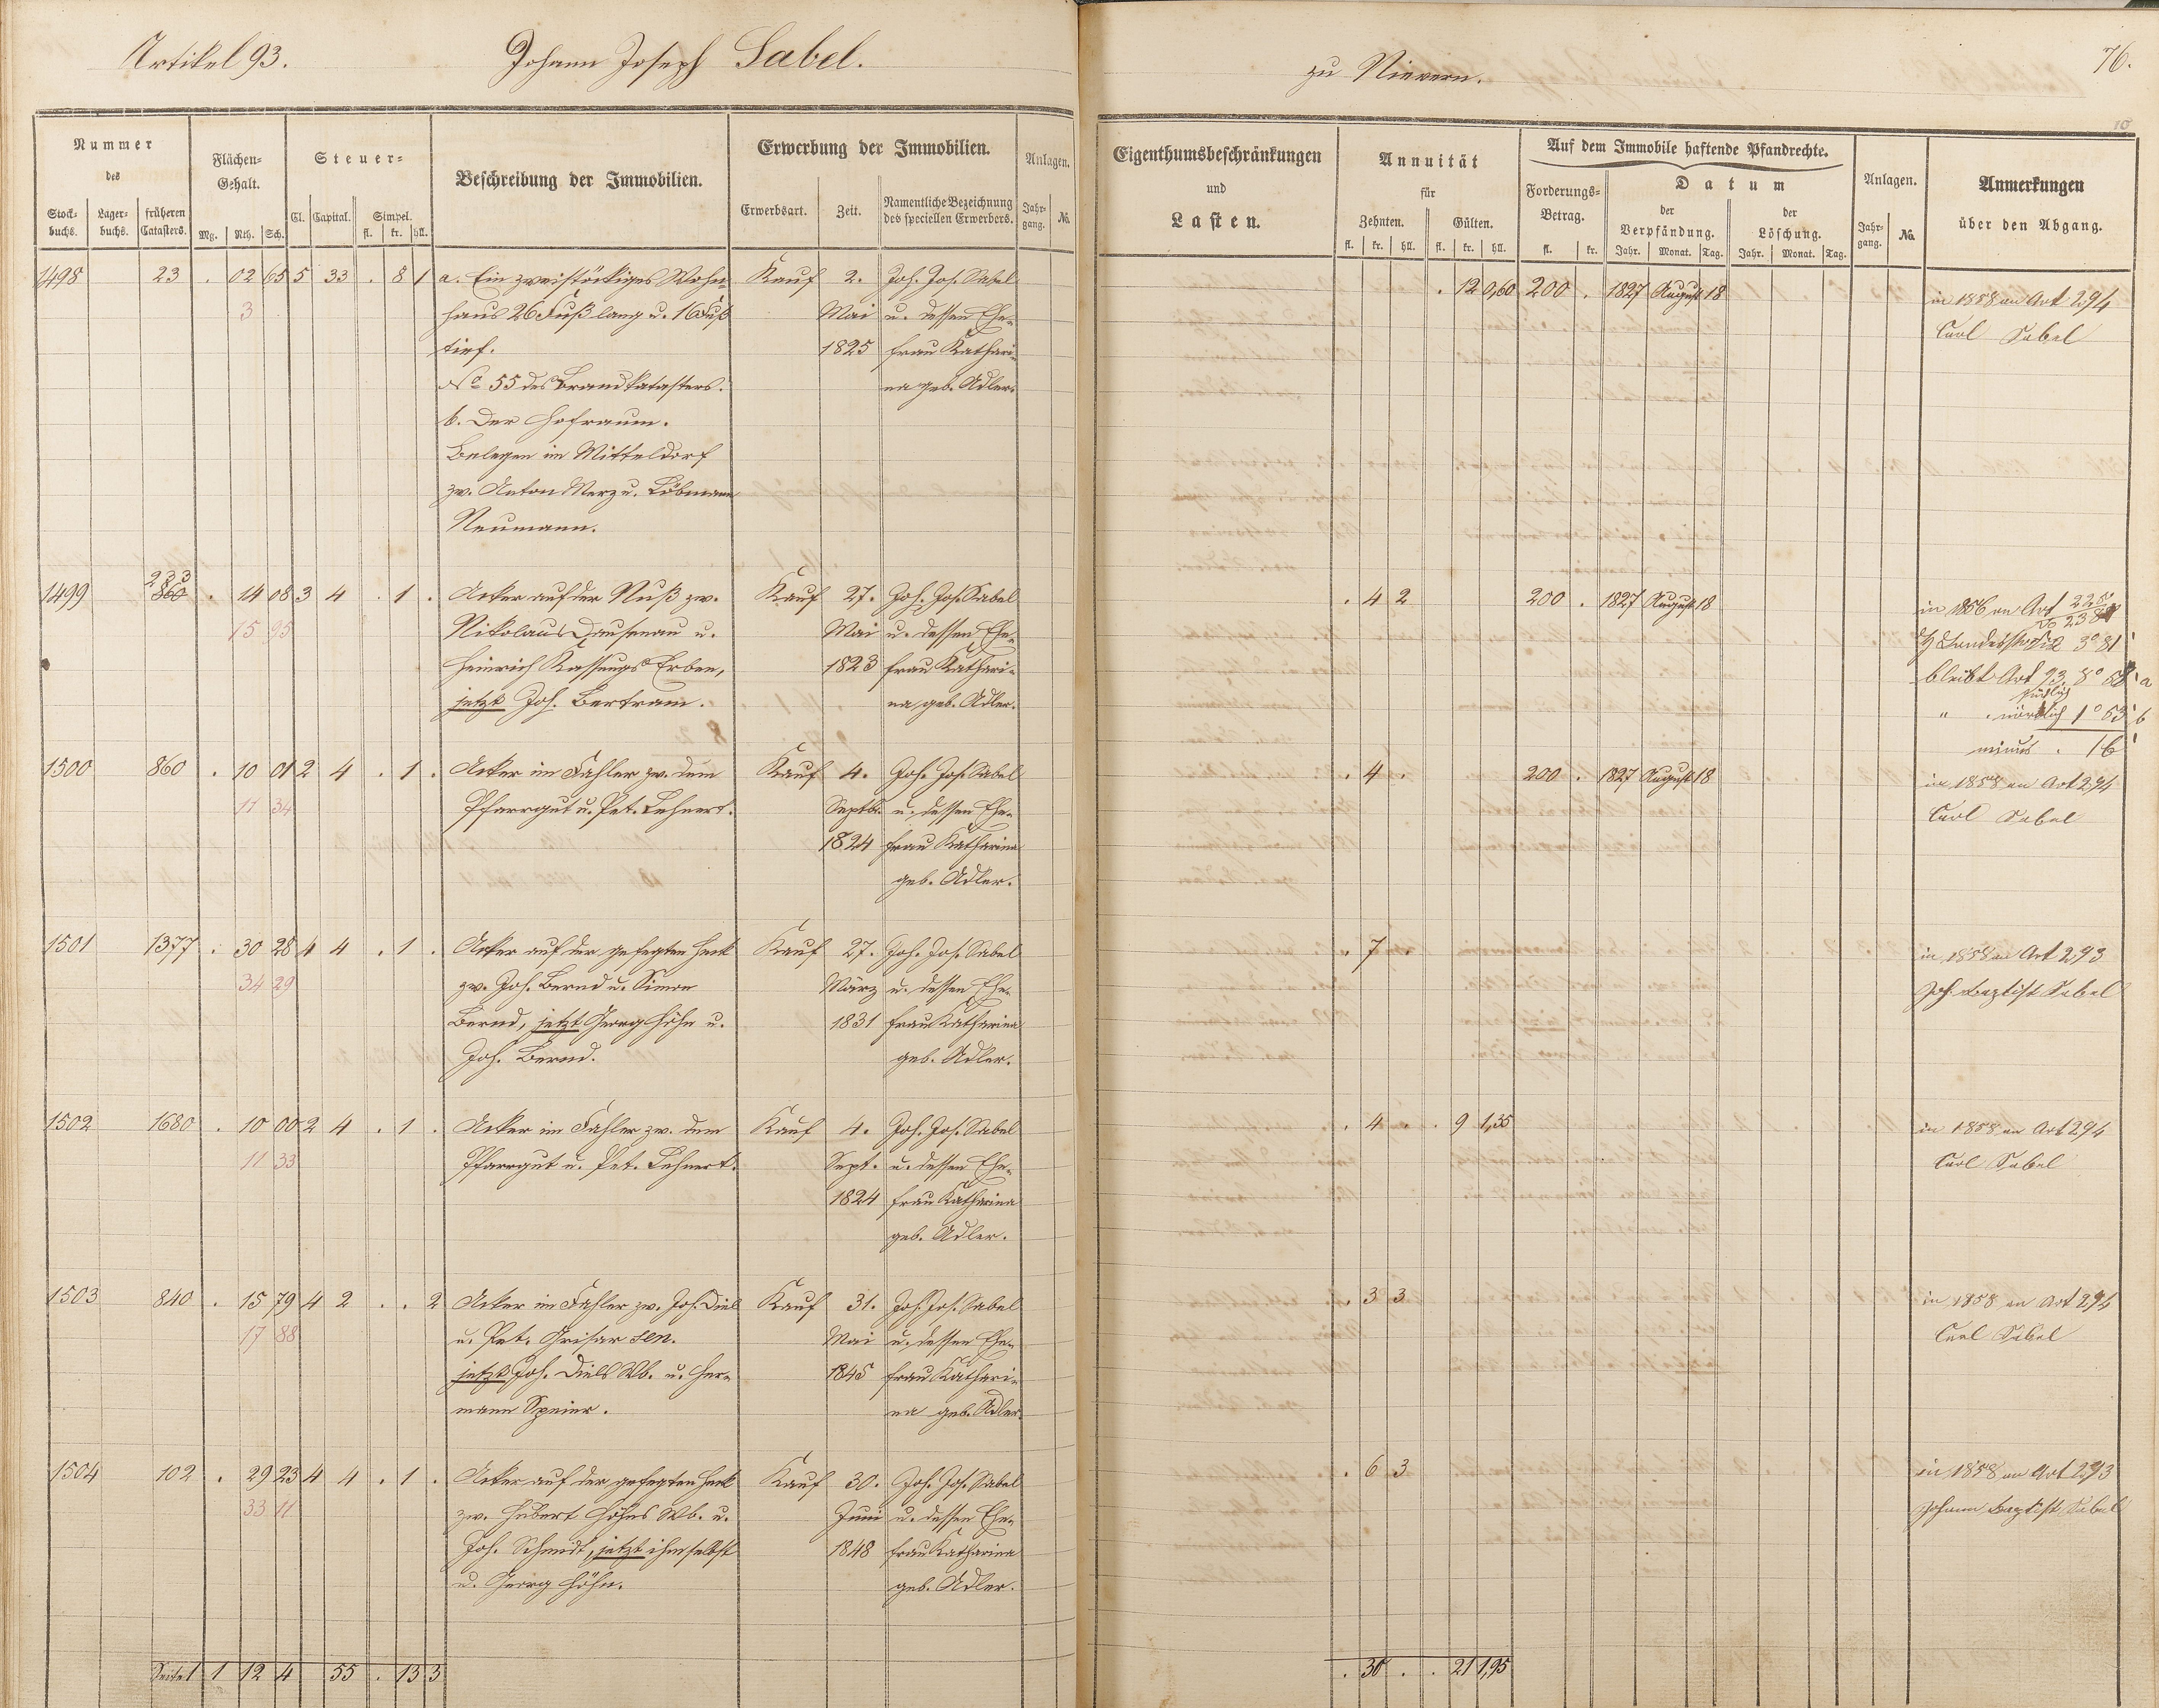 Artikel 93.
Johann Joseph Sabel.
zu Nievern.
76.
Nummer des
Flächen-Gehalt.
Steuer-
Beschreibung der Immobilien.
Erwerbung der Immobilien.
Anlagen.
Stock-buchs. Lager-buchs. früheren Catasters. Mg. Rth. Sch. Cl. Capital. Simpel. fl. kr. hll.
Erwerbsart. Zeit. Namentliche Bezeichnung des speciellen Erwerbers. Jahr-gang. No.
Eigenthumsbeschränkungen und Lasten.
Annuität für
Zehnten. fl. kr. hll. Gülten. fl. kr. hll.
Auf dem Immobile haftende Pfandrechte.
Forderungs-Betrag. fl. kr.
Datum
der Verpfändung. Jahr. Monat. Tag.
der Löschung. Jahr. Monat. Tag.
Anlagen. Jahr-gang. No.
Anmerkungen über den Abgang.
1498 23 . 02 65 5 33 . 8 1
3
a. Ein zweistöckiges Wohn-
haus 26 Fuß lang u. 16 Fuß
tief.
No 55 des Brandkatasters.
b. Der Hofraum.
Belegen im Mitteldorf
zw. Anton Merz u. Löbmann
Neumann.
Kauf
2.
Mai
1825
Joh. Jos. Sabel
u. dessen Ehe-
frau Kathari-
na geb. Adler.
. 12 0,60 200 . 1827 August 18
in 1858 an Art 294
Carl Sabel
1499 233
860 . 14 08 3 4 . 1 .
15 95
Acker auf der Nuß zw.
Nikolaus Dausenau u.
Heinrich Erben,
jetzt Joh. Bertram.
Kauf
27.
Mai
1823
Joh. Jos. Sabel
u. dessen Ehe-
frau Kathari-
na, geb. Adler.
. 4 2 200 . 1827 August 18
in 1856 an Art 225
3° 81'
bleibt Art 93. 8° 58' a
südlich
" nördlich 1° 53' b
minus . 16'
1500 860 . 10 01 2 4 . 1 .
11 34
Acker im Fahler zw. dem
Pfarrgut u. Pet. Lehnert.
Kauf
4.
Septb.
1824
Joh. Jos. Sabel
u. dessen Ehe-
frau Katharina
geb. Adler.
. 4 . 200 . 1827 August 18
in 1858 an Art 294
Carl Sabel
1501 1377 . 30 28 4 4 . 1 .
34 29
Acker auf der gefegten Heck
zw. Joh. Bernd u. Simon
Bernd, jetzt Georg Höhn u.
Joh. Bernd.
Kauf
27.
März
1831
Joh. Jos. Sabel
u. dessen Ehe-
frau Katharina
geb. Adler.
. 7 .
in 1858 an Art 293
Joh. Baptist Sabel
1502 1680 . 10 00 2 4 . 1 .
11 33
Acker im Fahler zw. dem
Pfarrgut u. Pet. Lehnert.
Kauf
4.
Sept.
1824
Joh. Jos. Sabel
u. dessen Ehe-
frau Katharina
geb. Adler.
. 4 . . 9 1,35
in 1858 an Art 294
Carl Sabel
1503 840 . 15 79 4 2 . . 2
17 88
Acker im Fahler zw. Joh. Diel
u. Pet. Grisar sen.
jetzt Joh. Diels Wb. u. Her-
mann Speier.
Kauf
31.
Mai
1845
Joh. Jos. Sabel
u. dessen Ehe-
frau Kathari-
na geb. Adler.
. 3 3
in 1858 an Art 294
Carl Sabel
1504 102 . 29 23 4 4 . 1 .
33 11
Acker auf der gefegten Heck
zw. Hubert Höhns Wb. u.
Joh. Schmidt, jetzt ihm selbst
u. Georg Höhn.
Kauf
30.
Juni
1848
Joh. Jos. Sabel
u. dessen Ehe-
frau Katharina
geb. Adler.
. 6 3
in 1858 an Art 293
Johann Baptist Sabel
Seite 1 1 12 4 55 . 13 3
. 30 . . 21 1,95